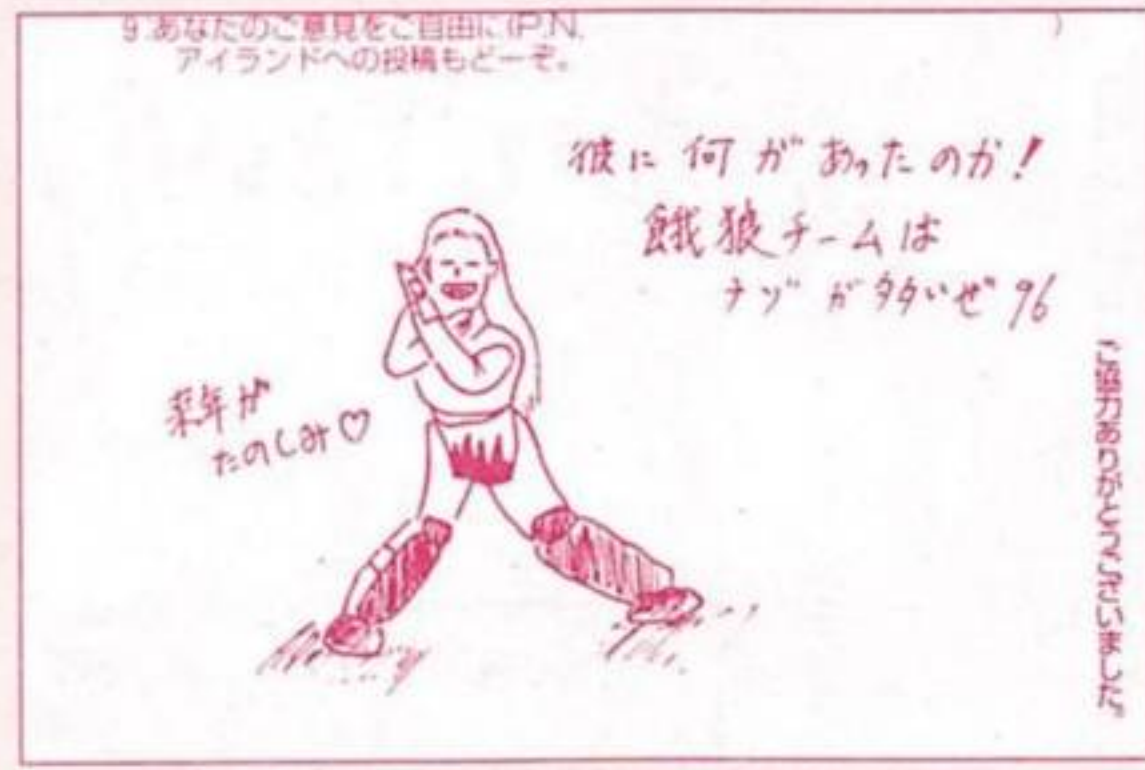 9.あなたのご意見をご自由に(P.N. )
アイランドへの投稿もどーぞ。
彼に何があったのか!
餓狼チームは
ナゾがタタいぜ96
来年が
たのしみ♡
ご協力ありがとうございました。